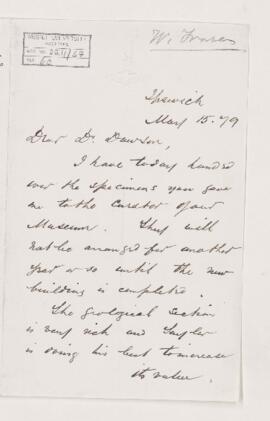 W. Fraser
McGILL UNIVERSITY
ARCHIVES
ACC. NO.
REF.
Ipswich
May 15. 79
Dear Dr. Dawson,
I have today handed
over the specimens you gave
me to the Curator of our
Museum. They will
not be arranged for another
year or so until the new
building is completed.
The geological section
is very rich and Taylor
is doing his best to increase
its value.